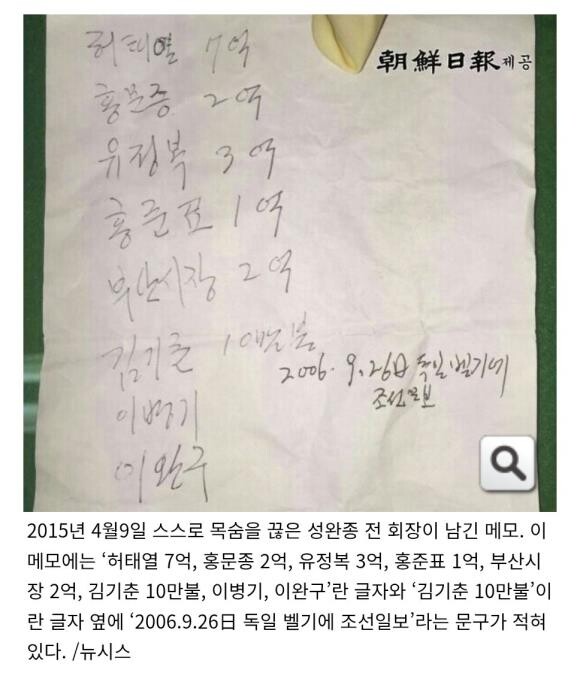 허태열 7억
朝鮮日報 제공
홍문종 2억
유정복 3억
홍준표 1억
부산시장 2억
김기춘 10만불
2006. 9.26日 독일 벨기에
조선일보
이병기
이완구
2015년 4월9일 스스로 목숨을 끊은 성완종 전 회장이 남긴 메모. 이
메모에는 ‘허태열 7억, 홍문종 2억, 유정복 3억, 홍준표 1억, 부산시
장 2억, 김기춘 10만불, 이병기, 이완구’란 글자와 ‘김기춘 10만불’이
란 글자 옆에 ‘2006.9.26日 독일 벨기에 조선일보’라는 문구가 적혀
있다. /뉴시스